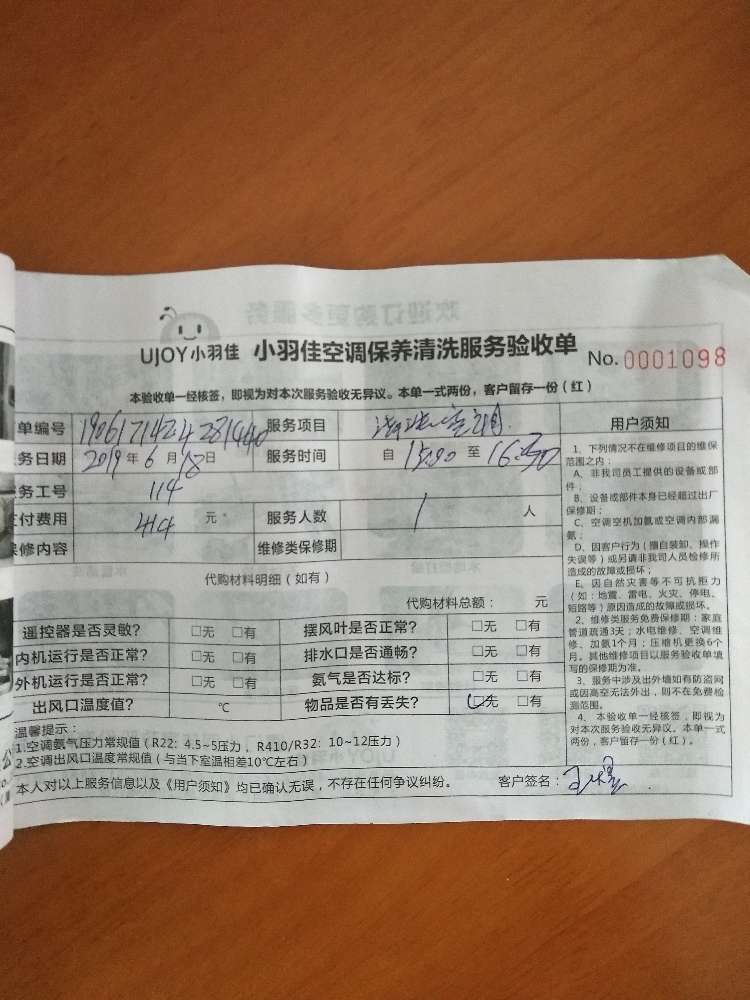 欢迎订购更多服务
UJOY小羽佳 小羽佳空调保养清洗服务验收单 No.0001098
本验收单一经核签，即视为对本次服务验收无异议。本单一式两份，客户留存一份（红）
单编号 服务项目 清洗空调
务日期 2019年6月18日 服务时间 自15:00至16:30
务工号 114
付费用 414元 服务人数 1人
修内容 维修类保修期
代购材料明细（如有）
代购材料总额： 元
遥控器是否灵敏？ □无 □有 摆风叶是否正常？ □无 □有
内机运行是否正常？ □无 □有 排水口是否通畅？ □无 □有
外机运行是否正常？ □无 □有 氨气是否达标？ □无 □有
出风口温度值？ ℃ 物品是否有丢失？ □无 □有
温馨提示：
1.空调氨气压力常规值（R22: 4.5~5压力， R410/R32: 10~12压力）
2.空调出风口温度常规值（与当下室温相差10℃左右）
本人对以上服务信息以及《用户须知》均已确认无误，不存在任何争议纠纷。 客户签名：
用户须知
1、下列情况不在维修项目的维保
范围之内：
A、非我司员工提供的设备或部
件；
B、设备或部件本身已经超过出厂
保修期；
C、空调空机加氨或空调内部漏
氨；
D、因客户行为（擅自装卸、操作
失误等）或另请非我司人员检修所
造成的故障或损坏；
E、因自然灾害等不可抗拒力
（如：地震、雷电、火灾、停电、
短路等）原因造成的故障或损坏。
2、维修类服务免费保修期：家庭
管道疏通3天；水电维修、空调维
修、加氨1个月；压缩机更换6个
月。其他维修项目以服务验收单填
写的保修期为准。
3、服务中涉及出外墙如有防盗网
或因高空无法外出，则不在免费检
测范围。
4、本验收单一经核签，即视为
对本次服务验收无异议。本单一式
两份，客户留存一份（红）。